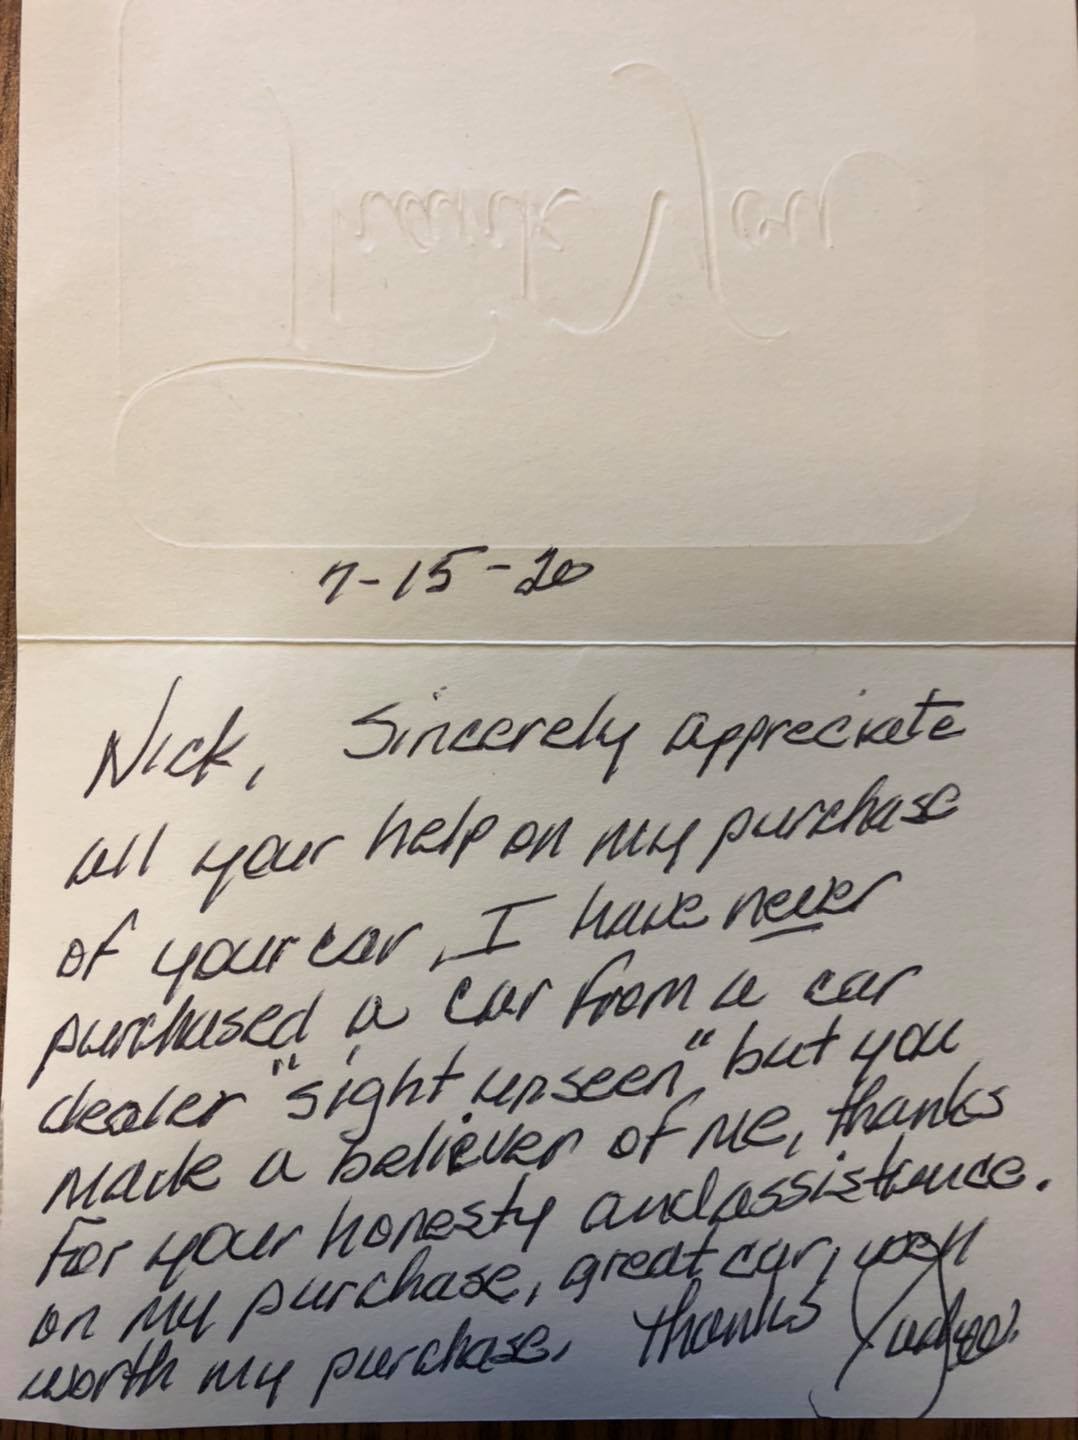 Thank You
7-15-20
Nick, Sincerely appreciate
all your help on my purchase
of your car, I have never
purchased a car from a car
dealer "sight unseen", but you
made a believer of me, thanks
For your honesty and assistance.
on my purchase, great car, well
worth my purchase. Thanks